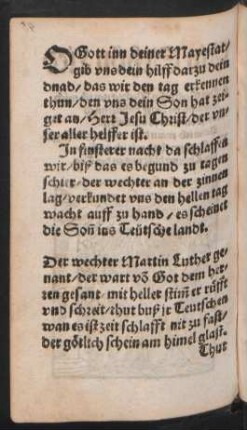 O Gott inn deiner Mayestat/
gib vns dein hilff darzu dein
gnad/ das wir den tag erkennen
thun/ den vns dein Son hat zei-
get an/ Herr Jesu Christ/ der vn-
ser aller helffer ist.
In finsterer nacht da schlaffen
wir/ biß das es begund zu tagen
schier/ der wechter an der zinnen
lag/ verkundet vns den hellen tag
wacht auff zu hand/ es scheinet
die Soñ ins Teütsche landt.
Der wechter Martin Luther ge-
nant/ der wart võ Got dem her-
ren gesant/ mit heller stim̃ er růfft
vnd schreit/ thut buß jr Teutschen
wan es ist zeit schlafft nit zu fast/
der götlich schein am himel glast.
Thut